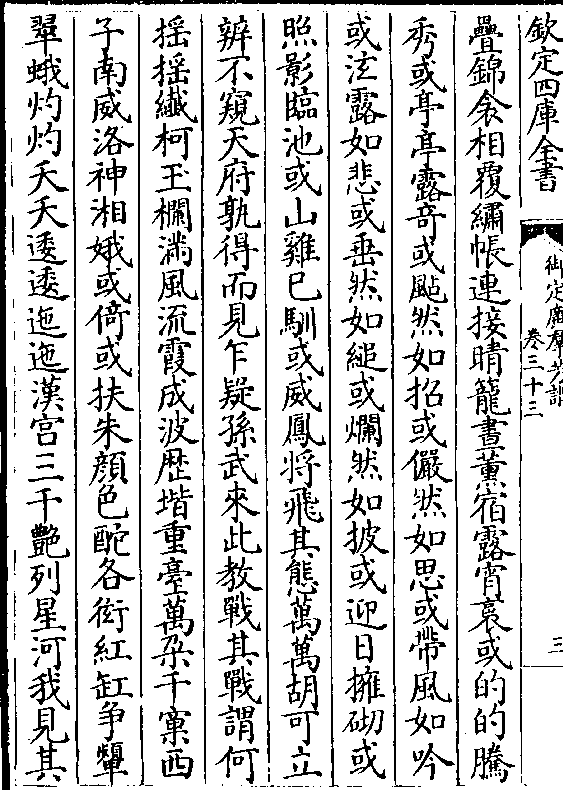 欽定四庫全書
御定廣羣芳譜
卷三十三
三
疊錦衾相覆繡帳連接晴籠晝薰宿露宵裛或的的騰
秀或亭亭露竒或颭然如招或儼然如思或帶風如吟
或泫露如悲或垂然如縋或爛然如披或迎日擁砌或
照影臨池或山雞已馴或威鳳將飛其態萬萬胡可立
辨不窺天府孰得而見乍疑孫武來此教戰其戰謂何
揺揺纎柯玉欄滿風流霞成波歴堦重臺萬朶千窠西
子南威洛神湘娥或倚或扶朱顔色酡各衒紅缸争顰
翠蛾灼灼夭夭逶逶迤迤漢宫三千艶列星河我見其